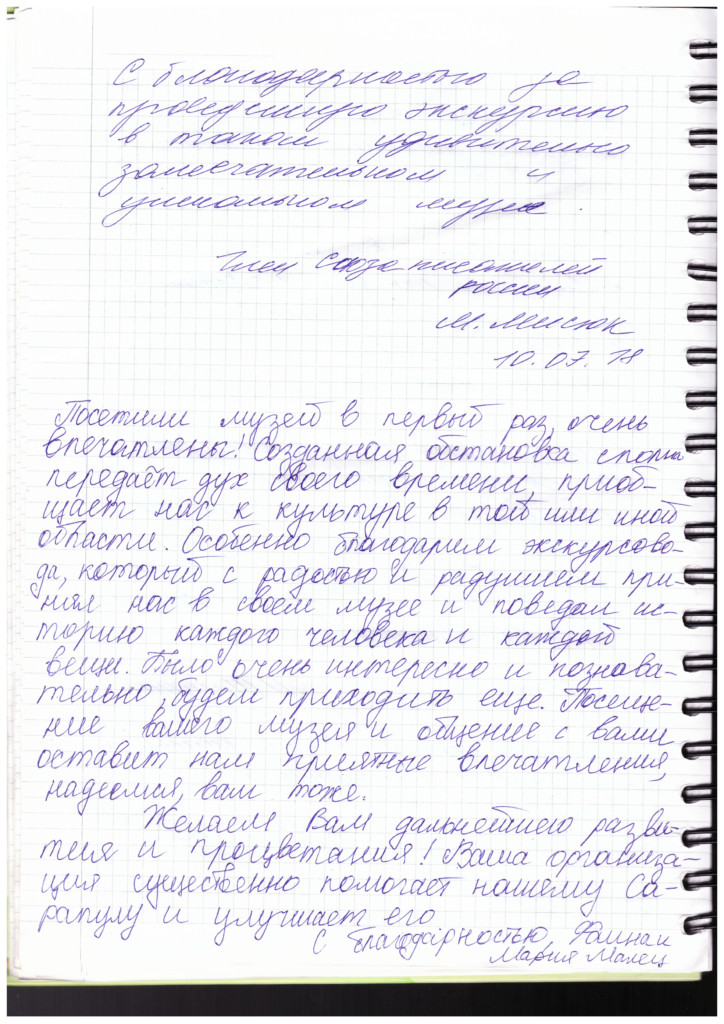 С благодарностью за
проведенную экскурсию
в таком удивительно
замечательном и
уникальном музее.
Член Союза писателей
россии
М. Мисюк
10.07.18
Посетили музей в первый раз, очень
впечатлены! Созданная обстановка сполна
передаёт дух своего времени, приоб-
щает нас к культуре в той или иной
области. Особенно благодарим экскурсово-
да, который с радостью и радушием при-
нял нас в своем музее и поведал ис-
торию каждого человека и каждой
вещи. Было очень интересно и познава-
тельно, будем приходить еще. Посеще-
ние вашего музея и общение с вами
оставит нам приятные впечатления,
надеемся, вам тоже.
Желаем Вам дальнейшего разви-
тия и процветания! Ваша организа-
ция существенно помогает нашему Са-
рапулу и улучшает его
С благодарностью,
Мария Малец